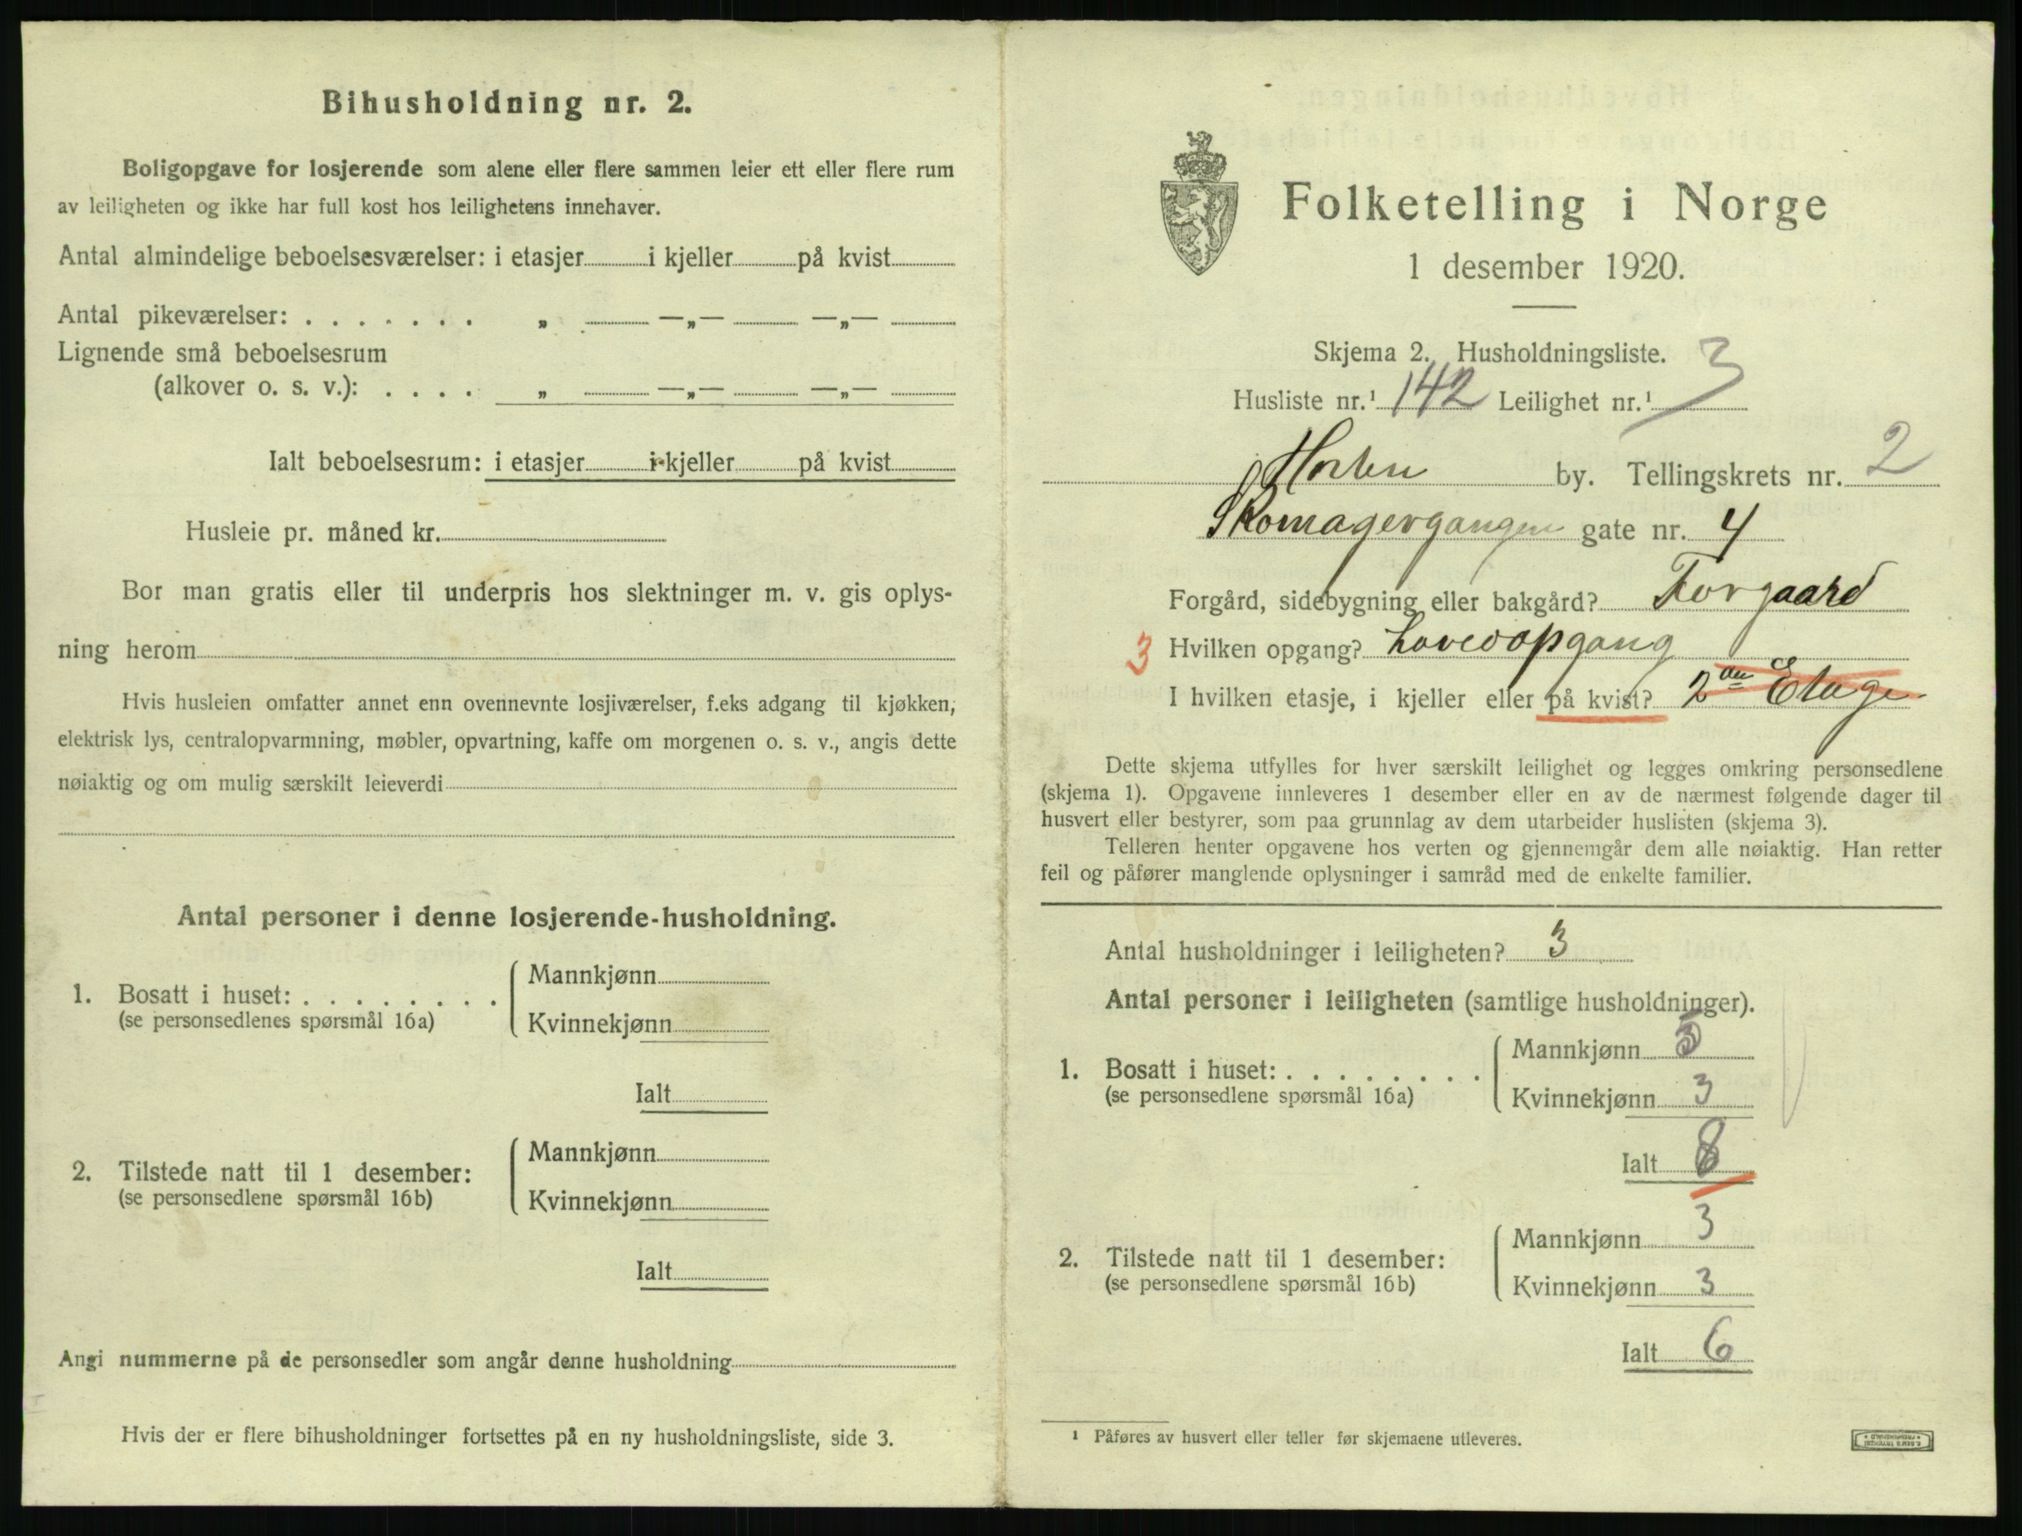 Bihusholdning nr. 2.
Boligopgave for losjerende som alene eller flere sammen leier ett eller flere rum
av leiligheten og ikke har full kost hos leilighetens innehaver.
Antal almindelige beboelsesværelser: i etasjer i kjeller på kvist
Antal pikeværelser: . . . . . . . „ —„— —„—
Lignende små beboelsesrum
(alkover o. s. v.): . . . . „ —„— —„—
Ialt beboelsesrum: i etasjer i kjeller på kvist
Husleie pr. måned kr.
Bor man gratis eller til underpris hos slektninger m. v. gis oplys-
ning herom
Hvis husleien omfatter annet enn ovennevnte losjiværelser, f.eks adgang til kjøkken,
elektrisk lys, centralopvarmning, møbler, opvartning, kaffe om morgenen o. s. v., angis dette
nøiaktig og om mulig særskilt leieverdi
Antal personer i denne losjerende-husholdning.
1. Bosatt i huset: . . . . . . . .
(se personsedlenes spørsmål 16a)
Mannkjønn
Kvinnekjønn
Ialt
2. Tilstede natt til 1 desember:
(se personsedlene spørsmål 16b)
Mannkjønn
Kvinnekjønn
Ialt
Angi nummerne på de personsedler som angår denne husholdning
Hvis der er flere bihusholdninger fortsettes på en ny husholdningsliste, side 3.
Folketelling i Norge
1 desember 1920.
Skjema 2. Husholdningsliste.
Husliste nr.¹ 142 Leilighet nr.¹ 3
Horten by. Tellingskrets nr. 2
Skomagergangen gate nr. 4
Forgård, sidebygning eller bakgård? Forgaard
3 Hvilken opgang? hovedopgang
I hvilken etasje, i kjeller eller på kvist? 2den Etage
Dette skjema utfylles for hver særskilt leilighet og legges omkring personsedlene
(skjema 1). Opgavene innleveres 1 desember eller en av de nærmest følgende dager til
husvert eller bestyrer, som paa grunnlag av dem utarbeider huslisten (skjema 3).
Telleren henter opgavene hos verten og gjennemgår dem alle nøiaktig. Han retter
feil og påfører manglende oplysninger i samråd med de enkelte familier.
Antal husholdninger i leiligheten? 3
Antal personer i leiligheten (samtlige husholdninger).
1. Bosatt i huset: . . . . . . . .
(se personsedlene spørsmål 16a)
Mannkjønn 5
Kvinnekjønn 3
Ialt 8
2. Tilstede natt til 1 desember:
(se personsedlene spørsmål 16b)
Mannkjønn 3
Kvinnekjønn 3
Ialt 6
¹ Påføres av husvert eller teller før skjemaene utleveres.